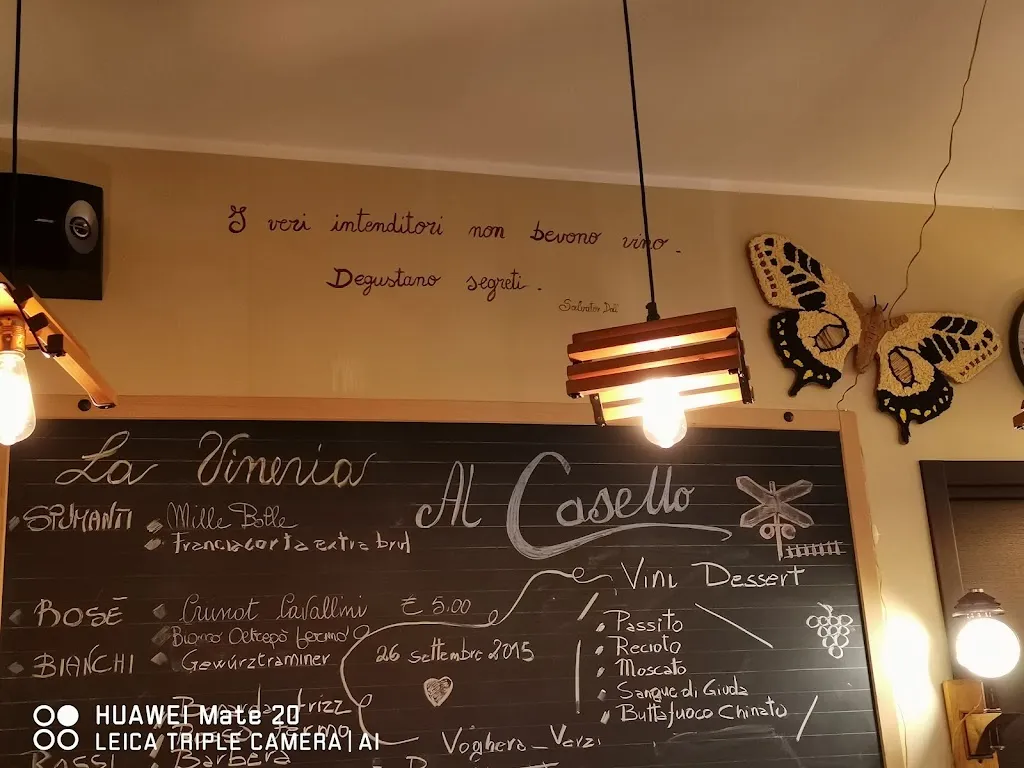 I veri intenditori non bevono vino.
Degustano segreti.
Salvator Dalì
La Vineria
Al Casello
SPUMANTI
Mille Bolle
Franciacorta extra brut
ROSÉ
Crunot Cavallini € 5.00
BIANCHI
Bianco Oltrepò fermo
Gewürztraminer
26 settembre 2015
Vini Dessert
Passito
Recioto
Moscato
Sangue di Giuda
Buttafuoco Chinato
Bonarda frizz
fermo
ROSSI
Barbera
Voghera - Varzi
HUAWEI Mate 20
LEICA TRIPLE CAMERA | AI